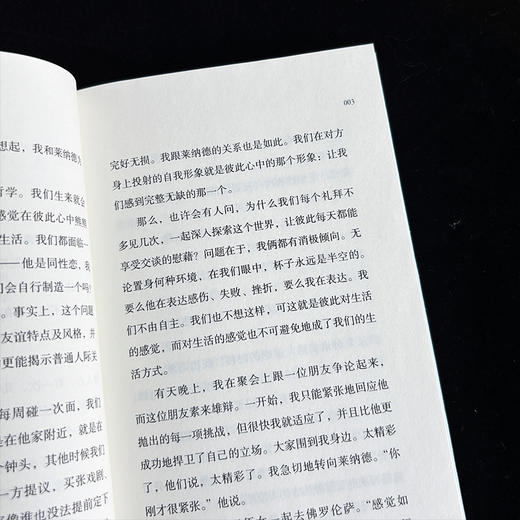 想起，我和莱纳德
哲学。我们生来就会
感觉在彼此心中熊熊
生活。我们都面临一
——他是同性恋，我
们会自行制造一个吗？
。事实上，这个问题
友谊特点及风格，并
更能揭示普通人际关
每周碰一次面，我们
是在他家附近，就是在
个钟头，其他时候我们
一方提议，买张戏剧、
像谁也没法提前定下
003
完好无损。我跟莱纳德的关系也是如此。我们在对方
身上投射的自我形象就是彼此心中的那个形象：让我
们感到完整无缺的那一个。
那么，也许会有人问，为什么我们每个礼拜不
多见几次，一起深入探索这个世界，让彼此每天都能
享受交谈的慰藉？问题在于，我俩都有消极倾向。无
论置身何种环境，在我们眼中，杯子永远是半空的。
要么他在表达感伤、失败、挫折，要么我在表达。我
们不由自主。我们也不想这样，可这就是彼此对生活
的感觉，而对生活的感觉也不可避免地成了我们的生
活方式。
有天晚上，我在聚会上跟一位朋友争论起来，
而这位朋友素来雄辩。一开始，我只能紧张地回应他
抛出的每一项挑战，但很快我就适应了，并且比他更
成功地捍卫了自己的立场。大家围到我身边。太精彩
了，他们说，太精彩了。我急切地转向莱纳德。“你
刚才很紧张。”他说。
女一起去佛罗伦萨。“感觉如